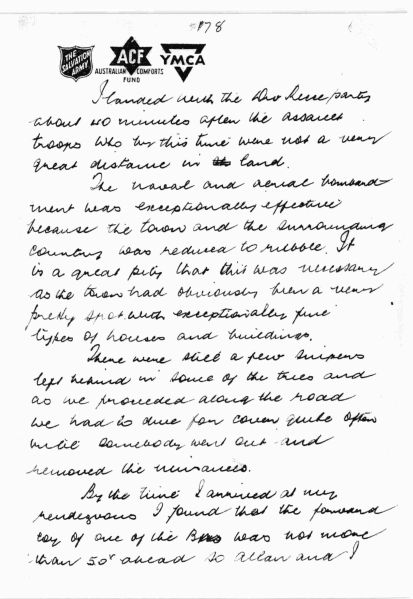 178
THE SALVATION ARMY
ACF
AUSTRALIAN COMFORTS FUND
YMCA
I landed with the Div Recce party
about 40 minutes after the assault
troops who by this time were not a very
great distance in land.
The naval and aerial bombard-
ment was exceptionally effective
because the town and the surrounding
country was reduced to rubble. It
is a great pity that this was necessary
as the town had obviously been a very
pretty spot with exceptionally fine
types of houses and buildings.
There were still a few snipers
left behind in some of the trees and
as we proceeded along the road
we had to dive for cover quite often
until somebody went out and
removed the nuisances.
By the time I arrived at my
rendezvous I found that the forward
coy of one of the Bns was not more
than 50x ahead so Allan and I